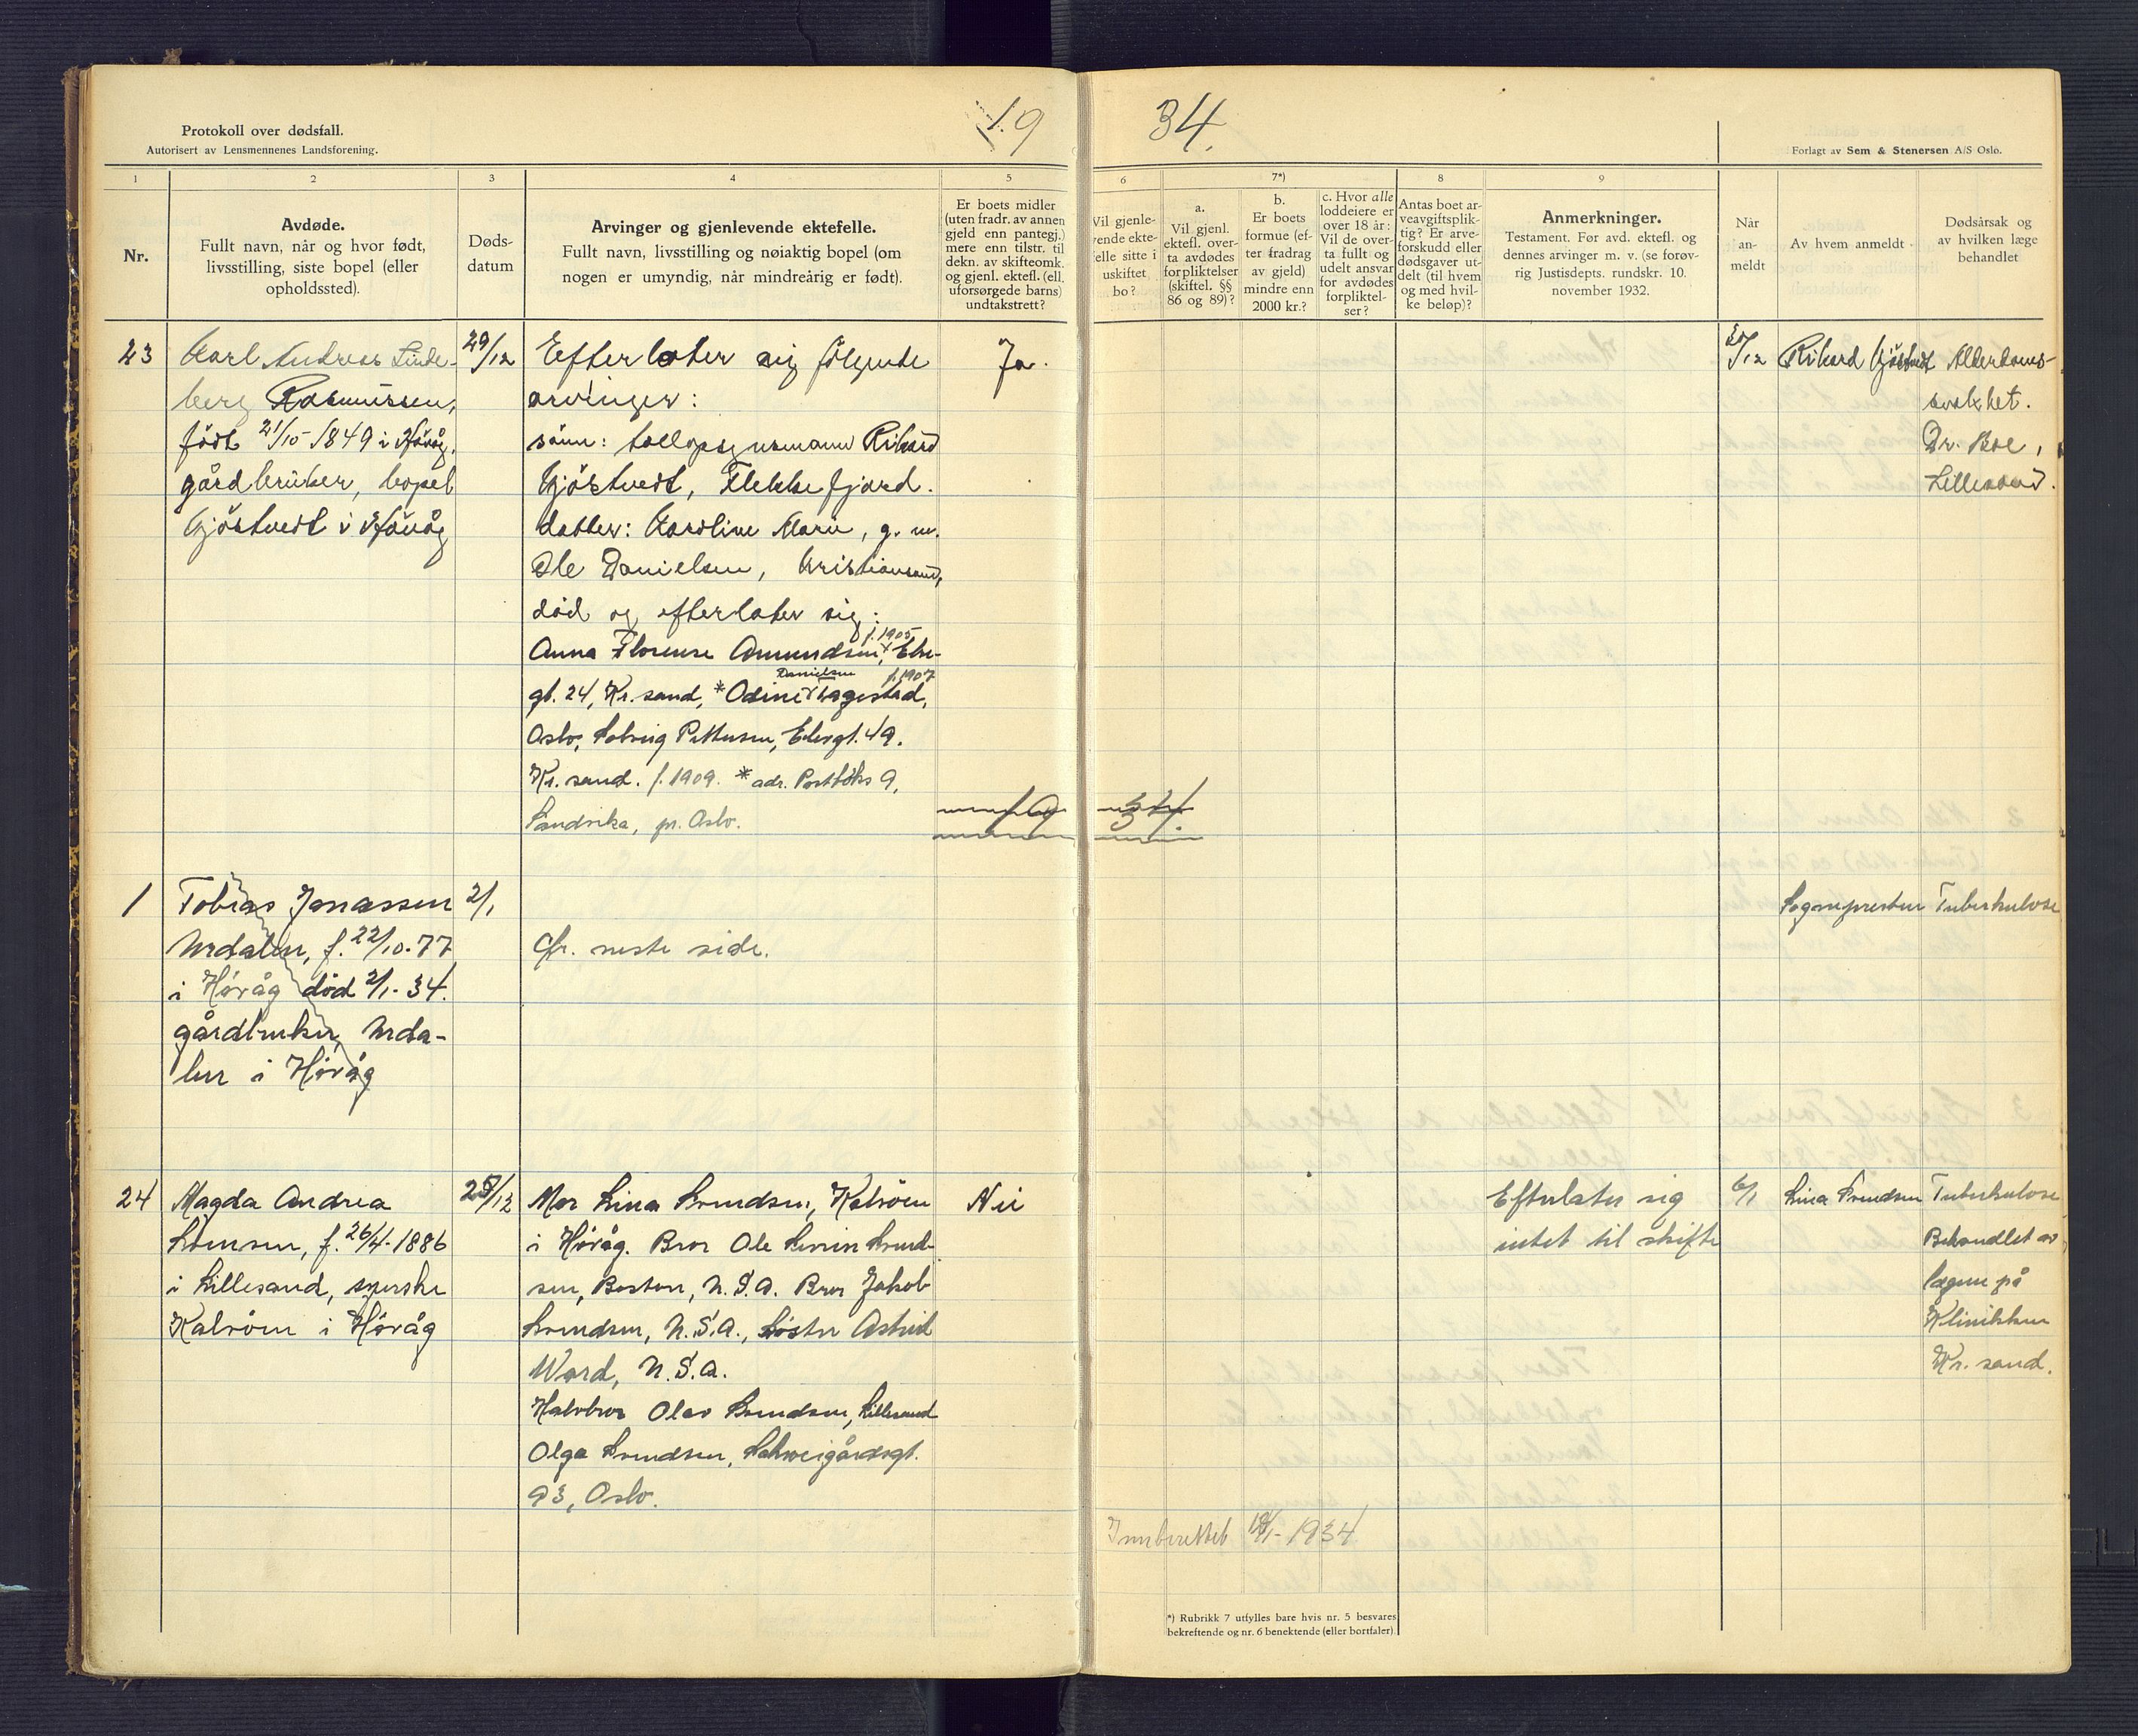 Protokoll over dødsfall.
Autorisert av Lensmennenes Landsforening.
19 34.
Forlagt av Sem & Stenersen A/S Oslo.
1 2 3 4 5 6 7*) 8 9
Nr.
Avdøde.
Fullt navn, når og hvor født,
livsstilling, siste bopel (eller
opholdssted).
Døds-
datum
Arvinger og gjenlevende ektefelle.
Fullt navn, livsstilling og nøiaktig bopel (om
nogen er umyndig, når mindreårig er født).
Er boets midler
(uten fradr. av annen
gjeld enn pantegj.)
mere enn tilstr. til
dekn. av skifteomk.
og gjenl. ektefl. (ell.
uforsørgede barns)
undtakstrett?
Vil gjenle-
vende ekte-
felle sitte i
uskiftet
bo?
a.
Vil gjenl.
ektefl. over-
ta avdødes
forpliktelser
(skiftel. §§
86 og 89)?
b.
Er boets
formue (ef-
ter fradrag
av gjeld)
mindre enn
2000 kr.?
c. Hvor alle
loddeiere er
over 18 år:
Vil de over-
ta fullt og
udelt ansvar
for avdødes
forpliktel-
ser?
Antas boet ar-
veavgiftsplik-
tig? Er arve-
forskudd eller
dødsgaver ut-
delt (til hvem
og med hvil-
ke beløp)?
Anmerkninger.
Testament. Før avd. ektefl. og
dennes arvinger m. v. (se forøv-
rig Justisdepts. rundskr. 10.
november 1932.
Når
an-
meldt
Av hvem anmeldt
Dødsårsak og
av hvilken læge
behandlet
23
Karl Andreas Linde-
berg Rasmussen,
født 21/10 1849 i Høvåg.
gårdbruker, bopel
Gjöstvedt i Høvåg
29/12
Efterlater sig følgende
arvinger:
sønn: tollopsynsmann Rikard
Gjöstvedt, Flekkefjord.
datter: Karoline Marie, g. m.
Ole Danielsen, Kristiansand,
död og efterlater sig:
f. 1905
Anna Florense Amundsen, Elve-
Danielsen f. 1907
gt. 24, Kr. sand, *Odine Hagestad,
Oslo, Solveig Pettersen, Elvegt. 49.
Kr. sand. f. 1909. *adr. Postboks 9,
Sandvika, pr. Oslo.
Ja.
30/12
Rikard Gjöstvedt
Alderdoms-
svakhet.
Dr. Boe,
Lillesand.
19 34.
1
Tobias Jonassen
Urdalen, f. 22/10-77
i Høvåg død 2/1-34.
gårdbruker, Urda-
len i Høvåg
2/1
Cfr. neste side.
Sognepresten
Tuberkulose
24
Magda Andrea
Simsen, f. 26/4-1886
i Lillesand, syerske
Kalvøen i Høvåg
Mor Lina Svendsen, Kalvöen
i Høvåg. Bror Ole Severin Svend-
sen, Boston, U.S.A. Bror Jakob
Svendsen, U.S.A., Søster Astrid
Ward, U.S.A.
Halvbror Olav Svendsen, Lillesand
Olga Svendsen, Schweigårdsgt.
93, Oslo.
Nei
Efterlater sig
intet til skifte
6/1
Lina Svendsen
Tuberkulose
Behandlet av
lægene på
Klinikken
Kr. sand.
Innberettet 1934
*) Rubrikk 7 utfylles bare hvis nr. 5 besvares
bekreftende og nr. 6 benektende (eller bortfaler).